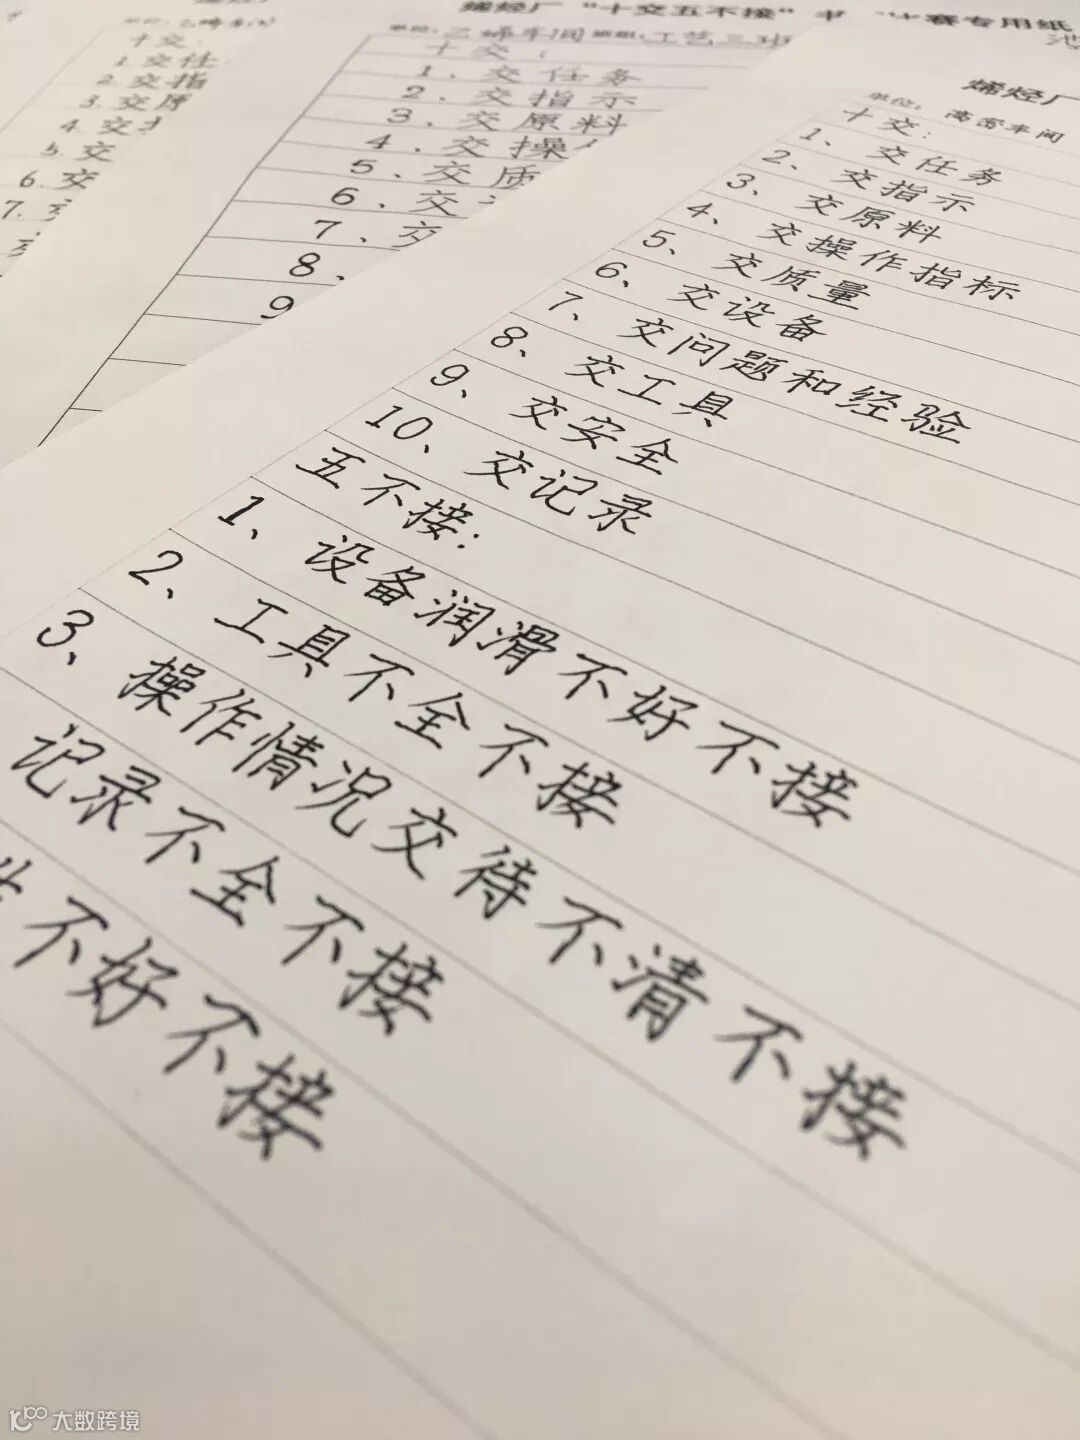 烯烃厂“十交五不接”书
赛专用纸
单位：乙烯车间 班组：工艺三班
十交：
1、交任务
2、交指示
3、交原料
4、交操
5、交质
6、交
7、交
8、
9
十交
1 交任
2. 交指
3. 交原
4. 交
5. 交
6. 交
7.
烯烃厂
单位：
车间
十交：
1、交任务
2、交指示
3、交原料
4、交操作指标
5、交质量
6、交设备
7、交问题和经验
8、交工具
9、交安全
10、交记录
五不接：
1、设备润滑不好不接
2、工具不全不接
3、操作情况交待不清不接
记录不全不接
不好不接
大数跨境